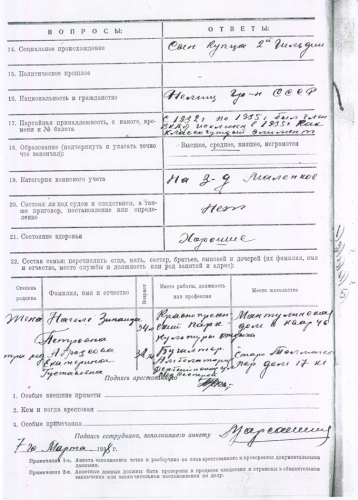 ВОПРОСЫ: ОТВЕТЫ:
14. Социальное происхождение Сын Купца 2й Гильдии
15. Политическое прошлое
16. Национальность и гражданство Немец Гр-н СССР
17. Партийная принадлежность, с какого времени и № билета С 1932 г. по 1935 г. был член
ВКПб исключен в 1935 г. как
классочуждый элемент
18. Образование (подчеркнуть и указать точно что закончил): Высшее, среднее, низшее, неграмотен
19. Категория воинского учета На З-д Маленкова
20. Состоял ли под судом и следствием, а также приговор, постановление или определение Нет
21. Состояние здоровья Хорошее
22. Состав семьи: перечислить отца, мать, сестер, братьев, сыновей и дочерей (их фамилия, имя
и отчество, место службы и должность или род занятий и адрес):
Степень родства Фамилия, имя и отчество Возраст Место работы, должность или профессия Место жительства
Жена Зинаида
Петровна 34 л. Краснопресненский парк
Культуры отдыха
Мантулинская
дом 2 квар 46
Екатерина
Густавовна Бухгалтер
Амбулатории
дом 17 кв
Подпись арестованного
1. Особые внешние приметы
2. Кем и когда арестован
3. Особые примечания
Подпись сотрудника, заполнившего анкету
7го Марта 1938 г.
Примечания 1-е. Анкета заполняется четко и разборчиво со слов арестованного и проверяется документальными
данными.
Примечание 2-е. Анкетные данные должны быть проверены в процессе следствия и отражены в обвинительном
заключении или заключительном постановлении по делу.